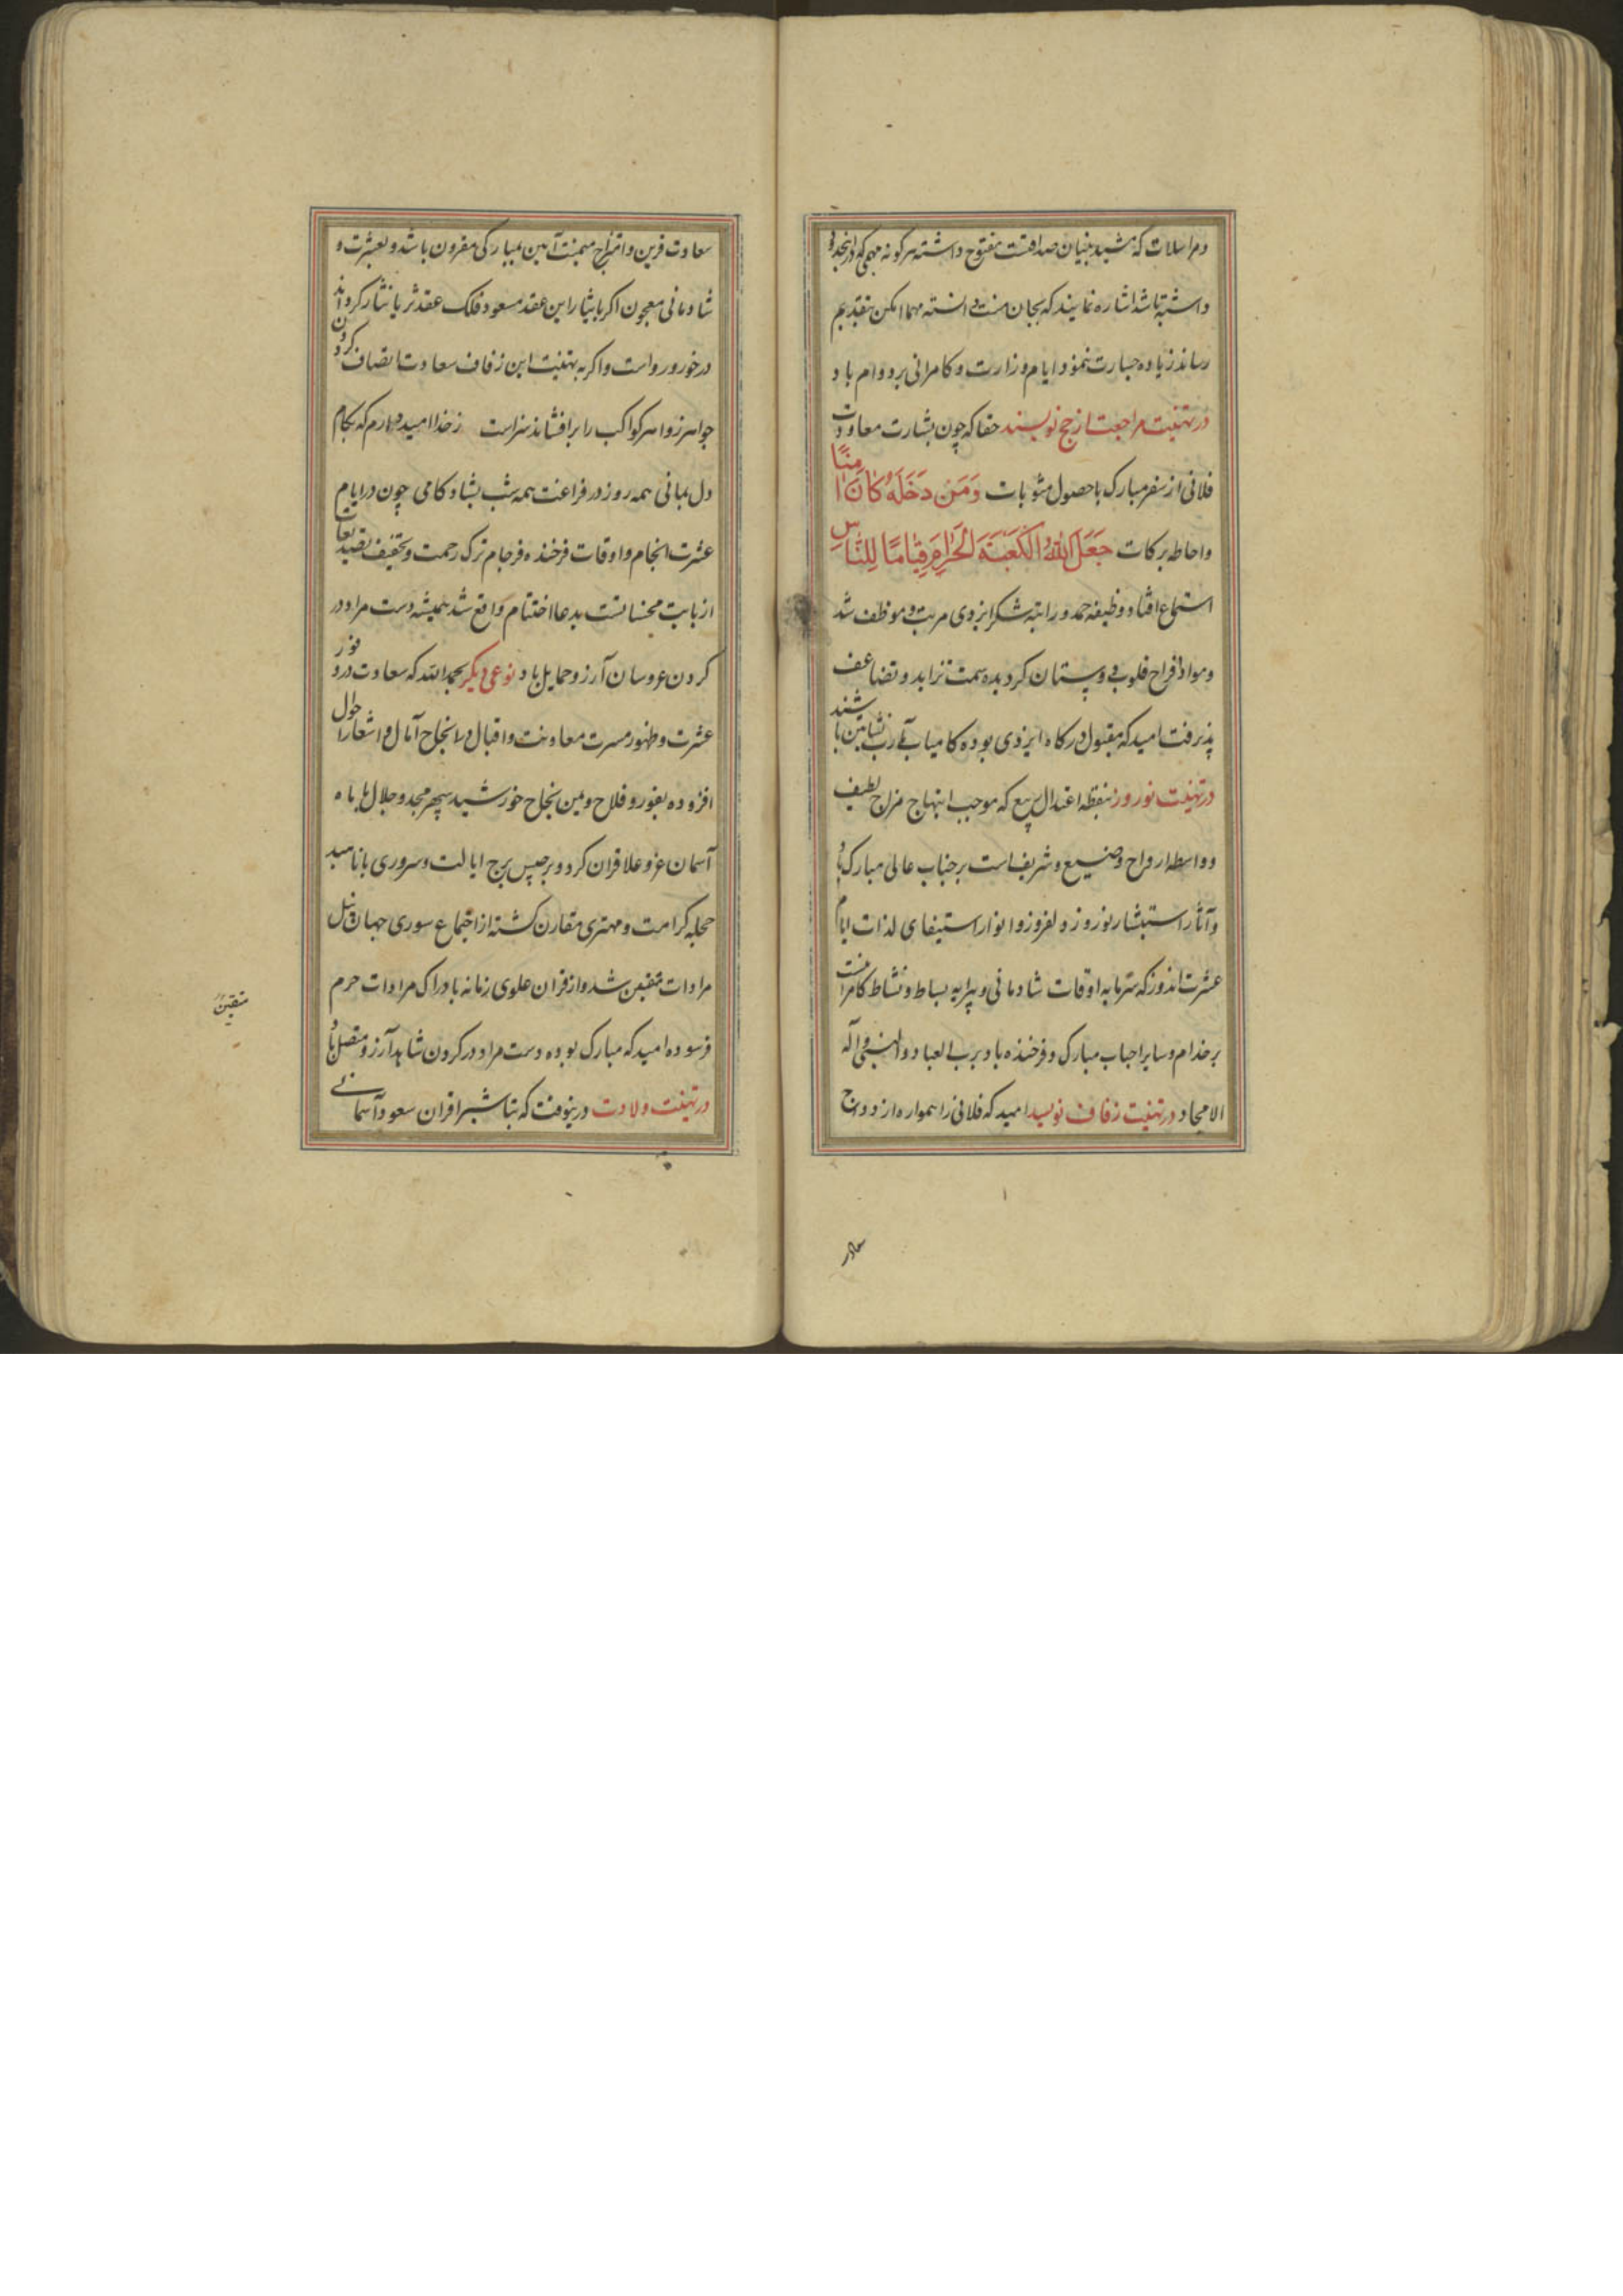 ومراسلات که مشید بنیان صداقتست مفتوح داشته هر کونه مهمی که در انجدود
داشته باشد اشاره نمایند که بجان منت دانسته مهما امکن بتقدیم
رساند زیاده جسارت ننمود ایام وزارت و کامرانی بر دوام باد
در تهنیت مراجعت از حج نویسند حقا که چون بشارت معاودت
فلانی از سفر مبارک با حصول مثوبات وَمَن دَخَلَهُ كَانَ اٰمِنًا
واحاطه برکات جَعَلَ اللّٰهُ الْكَعْبَةَ الْحَرَامَ قِیَامًا لِلنَّاسِ
استماع افتاد وظیفه حمد و راتبه شکر ایزدی مرتب و موظف شد
ومواد افراح قلوب دوستان کردیده سمت تزاید و تضاعف
پذیرفت امید که مقبول درکاه ایزدی بوده کامیاب مآرب نشاتین باشند
در تهنیت نوروز نقطه اعتدال ربیع که موجب ابتهاج مزاج لطیف
وواسطه ارواح وضیع و شریف است بر جناب عالی مبارک باد
وآثار استبشار نوروز دلفروز و انوار استیفای لذات ایام
عشرت اندوز که سرمایه اوقات شادمانی و پیرایه بساط و نشاط کامرانیست
بر خدام و سایر احباب مبارک و فرخنده باد برب العباد والنبی وآله
الامجاد در تهنیت زفاف نویسد امید که فلانی را همواره ازدواج
سعادر
سعادت قرین وامتزاج میمنت آیین بمبارکی مقرون باشد و بعشرت و
شادمانی معجون اکر بایثار این عقد مسعود فلک عقد ثریا نثار کرداند
درخور و رواست واکر به تهنیت این زفاف سعادت اتصاف کردون
جواهر زواهر کواکب را برافشاند سزاست زخدا امیدوارم که بکام
دل بمانی همه روز در فراغت همه شب بشادکامی چون در ایام
عشرت انجام واوقات فرخنده فرجام ترک زحمت و تخفیف تصدیعات
از بابت محسناتست بدعا اختتام واقع شد همیشه دست مراد در
کردن عروسان آرزو حمایل باد نوعی دیکر بحمد الله که سعادت درو فور
عشرت و ظهور مسرت معاونت واقبال در انجاح آمال و اشعار احوال
افزوده بفوز و فلاح و یمن نجاح خورشید سپهر مجد و جلال با ماه
آسمان عز وعلا قران کرد و برجیس برج ایالت و سروری با ناهید
حجله کرامت و مهتری مقارن کشته از اجتماع سوری جهان بنیل
مرادات متیقن شد و از قران علوی زمانه بادراک مرادات خرم
فرسوده امید که مبارک بوده دست مراد در کردن شاهد آرزو متصل باد
در تهنیت ولادت درینوقت که تباشیر اقران سعود آسمانی
متیقن